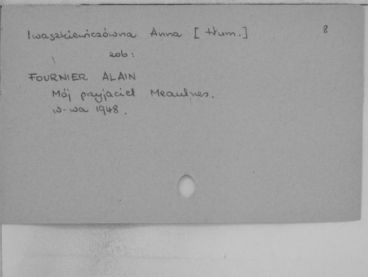 Iwaszkiewiczówna Anna [tłum.] 8
zob:
FOURNIER ALAIN
Mój przyjaciel Meaulnes.
W-wa 1948.